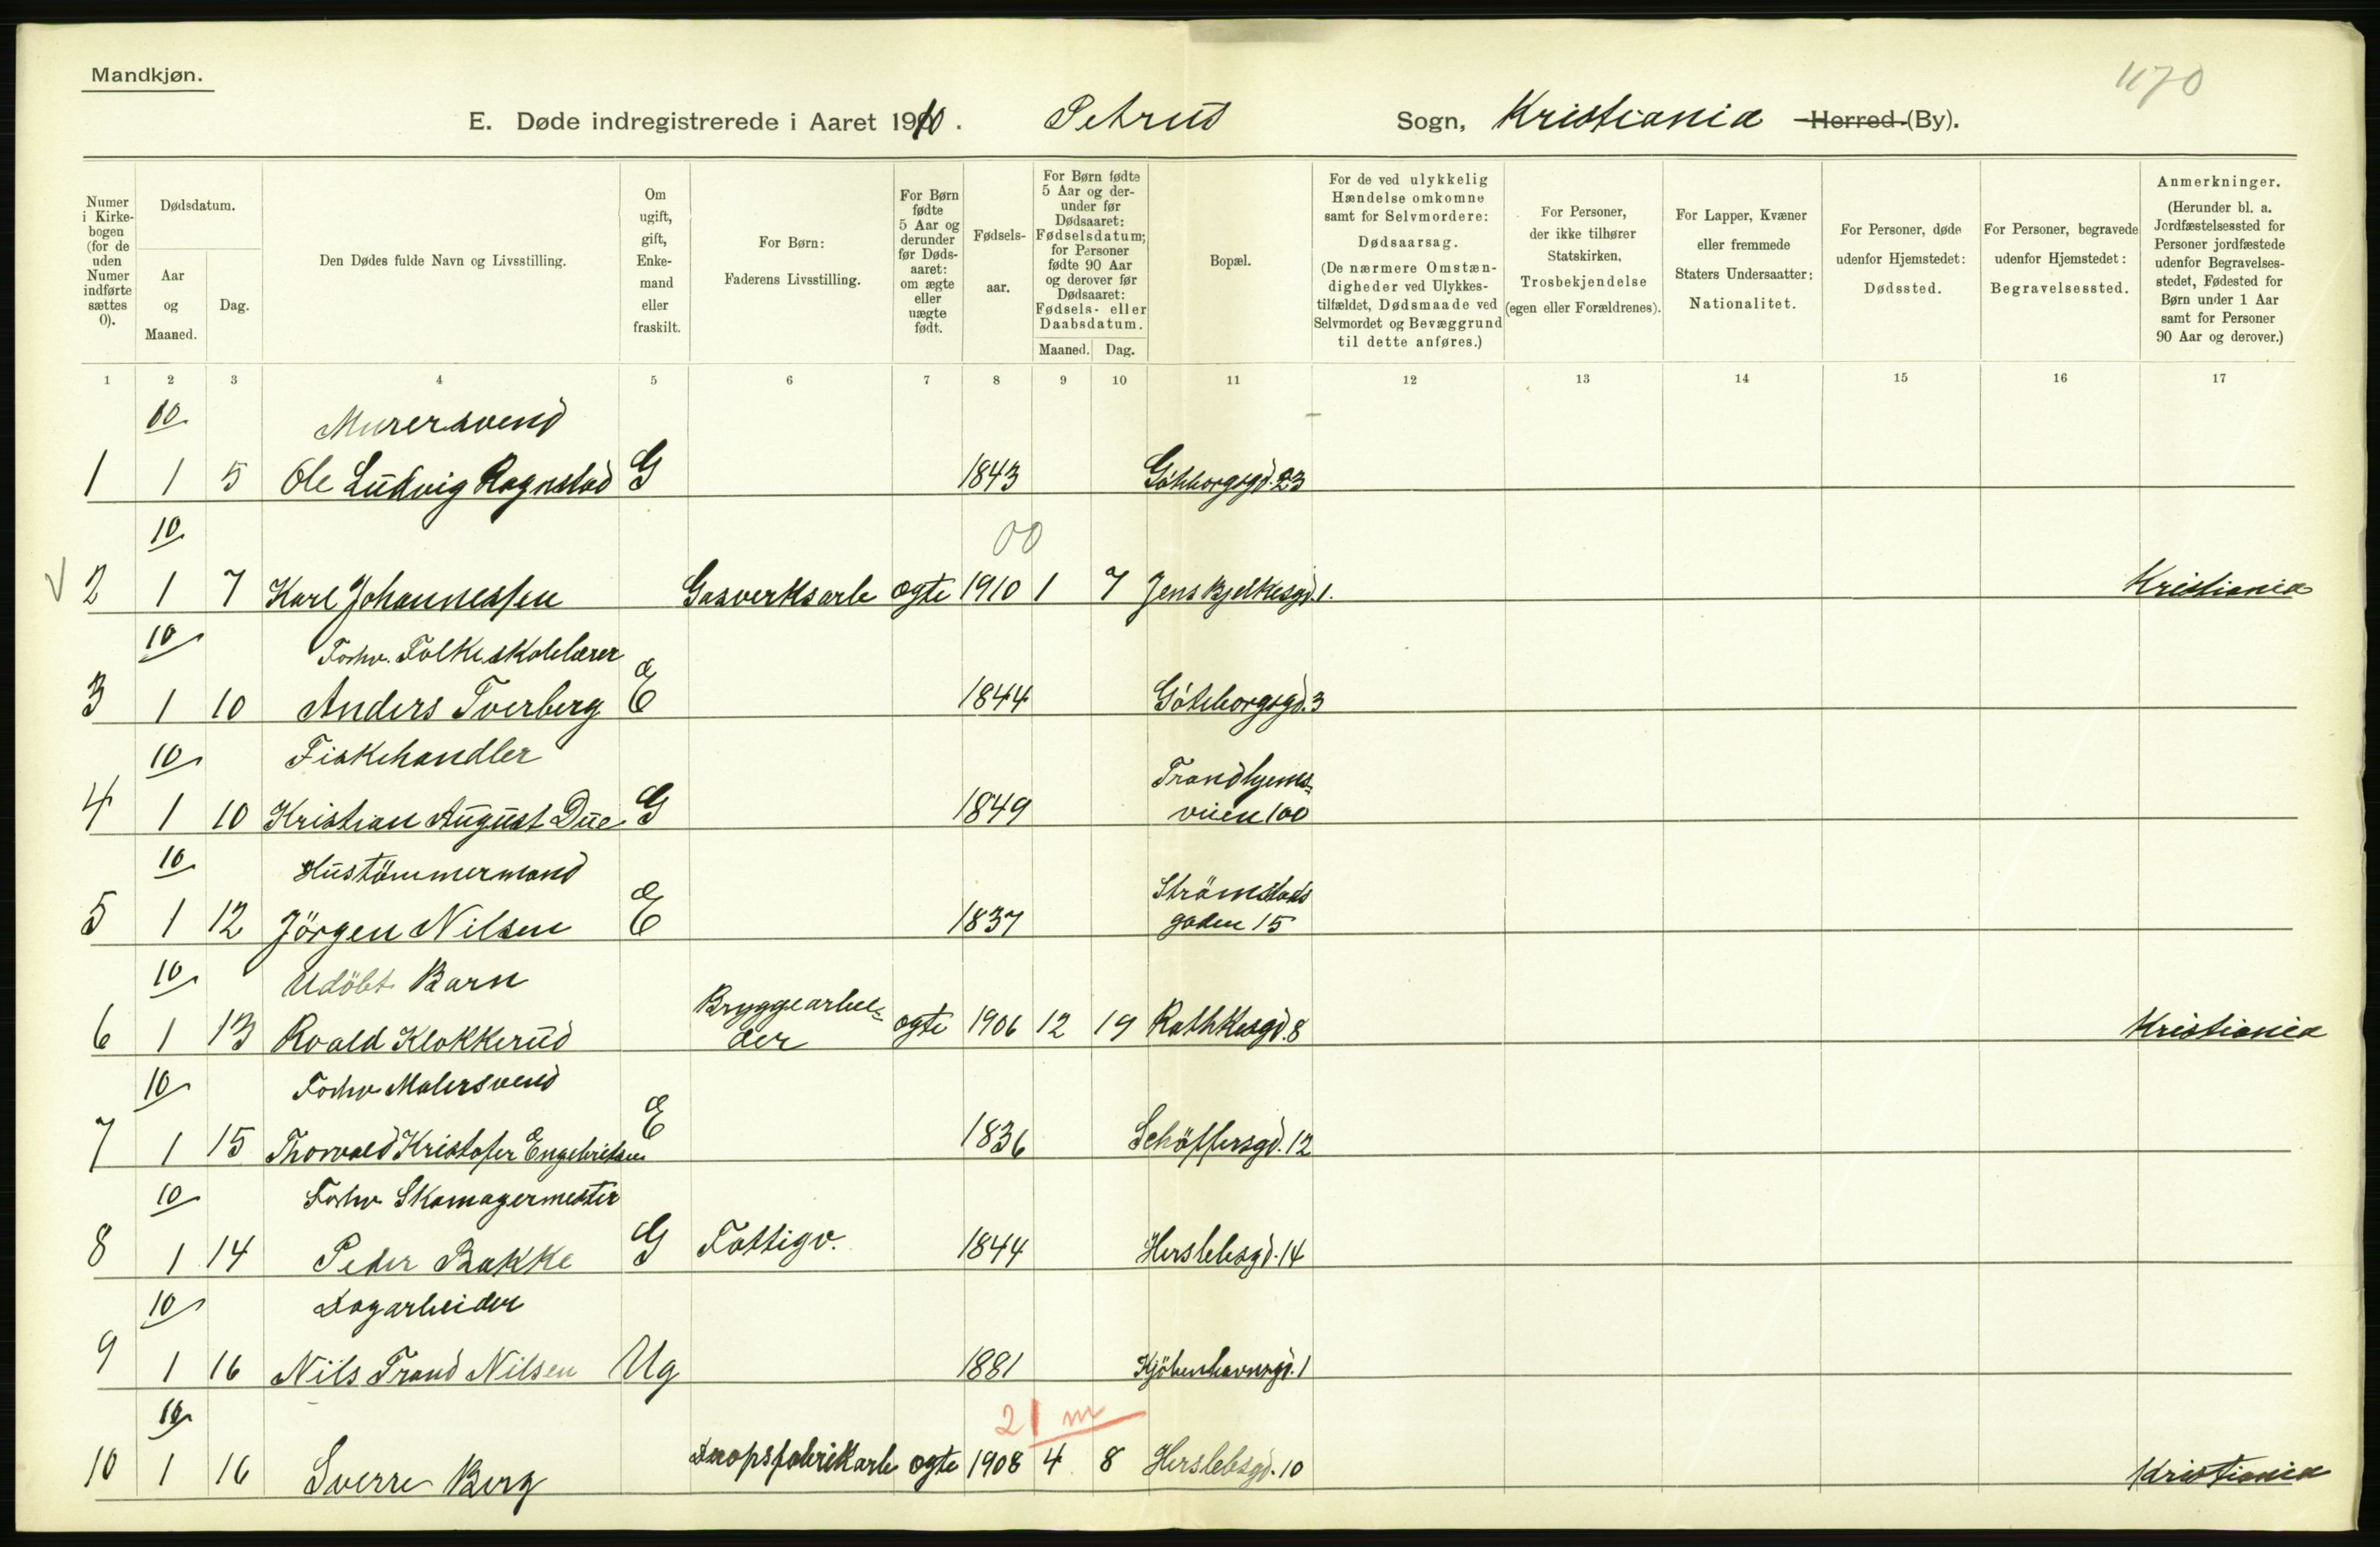 Mandkjøn.
1170
E. Døde indregistrerede i Aaret 1910. Petrus Sogn, Kristiania Herred (By).
Numer i Kirkebogen (for de uden Numer indførte sættes 0).
Dødsdatum.
Aar og Maaned.
Dag.
Den Dødes fulde Navn og Livsstilling.
Om ugift, gift, Enkemand eller fraskilt.
For Børn: Faderens Livsstilling.
For Børn fødte 5 Aar og derunder før Dødsaaret: om ægte eller uægte født.
Fødselsaar.
For Børn fødte 5 Aar og derunder før Dødsaaret: Fødselsdatum; for Personer fødte 90 Aar og derover før Dødsaaret: Fødsels- eller Daabsdatum.
Maaned. Dag.
Bopæl.
For de ved ulykkelig Hændelse omkomne samt for Selvmordere: Dødsaarsag. (De nærmere Omstændigheder ved Ulykkestilfældet, Dødsmaade ved Selvmordet og Bevæggrund til dette anføres.)
For Personer, der ikke tilhører Statskirken, Trosbekjendelse (egen eller Forældrenes).
For Lapper, Kvæner eller fremmede Staters Undersaatter: Nationalitet.
For Personer, døde udenfor Hjemstedet: Dødssted.
For Personer, begravede udenfor Hjemstedet: Begravelsessted.
Anmerkninger. (Herunder bl. a. Jordfæstelsessted for Personer jordfæstede udenfor Begravelsesstedet, Fødested for Børn under 1 Aar samt for Personer 90 Aar og derover.)
1 2 3 4 5 6 7 8 9 10 11 12 13 14 15 16 17
10 Murersvend
1 1 5 Ole Ludvig Rognstad G 1843 Göteborggd. 23
10 00
2 1 7 Karl Johannessen Gasverksarb ægte 1910 1 7 Jens Bjelkesgd. 1. Kristiania
10 Forhv. Folkeskolelærer
3 1 10 Anders Tverberg E 1844 Göteborgsgd. 3
10 Fiskehandler Trondhjems-
4 1 10 Kristian August Due G 1849 veien 100
10 Hustömmermand Strömstads
5 1 12 Jörgen Nilsen E 1837 gaden 15
10 Udöbt Barn Bryggearbei-
6 1 13 Roald Klokkerud der ægte 1906 12 19 Rathkesgd. 8 Kristiania
10 Forhv Malersvend
7 1 15 Thorvald Kristofer Engebretsen E 1836 Schöffersgd. 12
10 Forhv Skomagermester
8 1 14 Peder Bakke G Fattigv. 1844 Herslebsgd. 14
10 Dagarbeider
9 1 16 Nils Trand Nilsen Ug 1881 Kjöbenhavnsgd. 1
10 21 m
10 1 16 Sverre Berg Dropsfabrikarb ægte 1908 4 8 Herslebsgd. 10 Kristiania